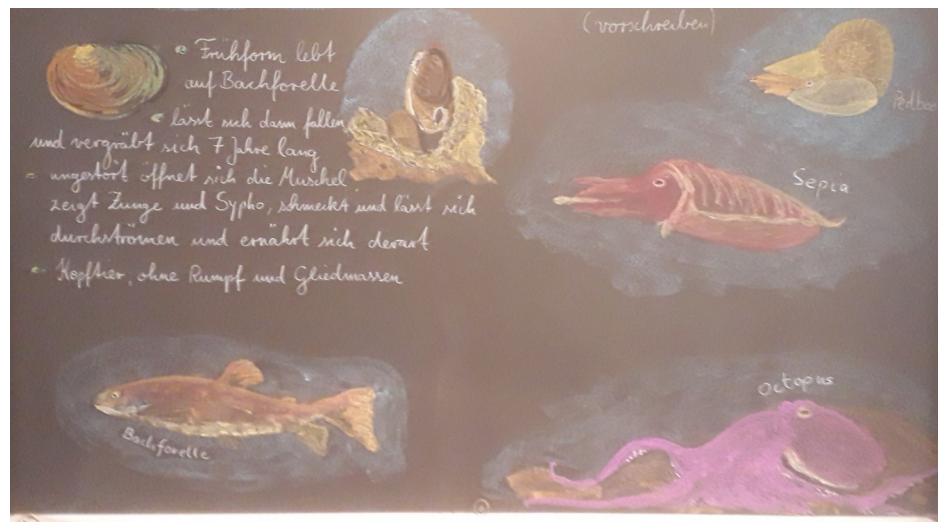 Frühform lebt
auf Bachforelle
lässt sich dann fallen
und vergräbt sich 7 Jahre lang
ungestört öffnet sich die Muschel
zeigt Zunge und Sypho, schmeckt und lässt sich
durchströmen und ernährt sich derart
Kopftier, ohne Rumpf und Gliedmassen
Bachforelle
(vorschreiben)
Sepia
Octopus